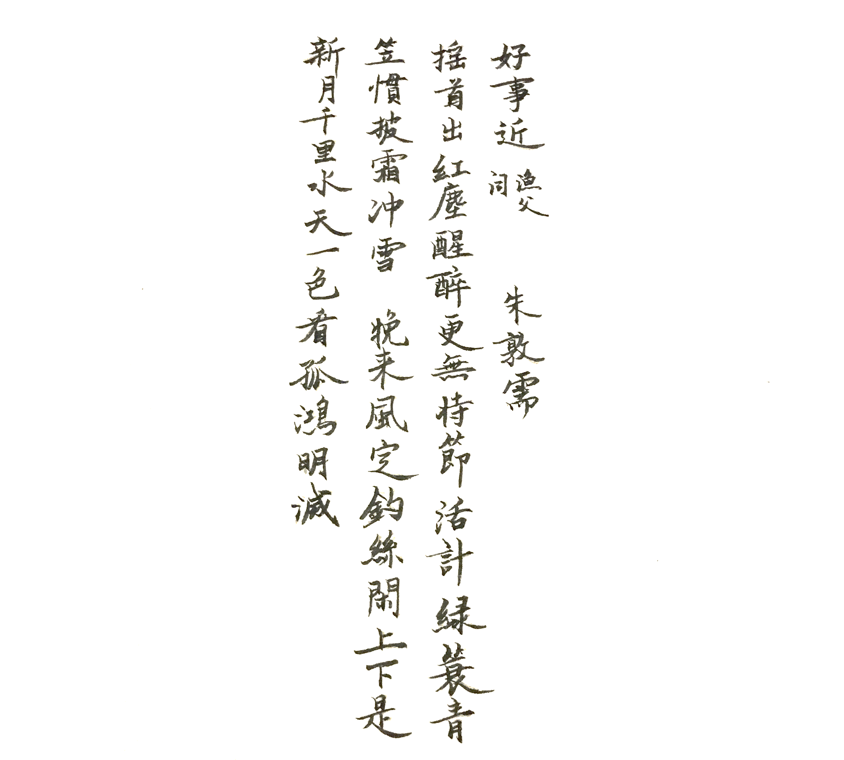 好事近 漁父詞 朱敦需
搖首出紅塵醒醉更無時節活計緑蓑青
笠慣披霜冲雪 晚来風定釣絲閑上下是
新月千里水天一色看孤鴻明滅